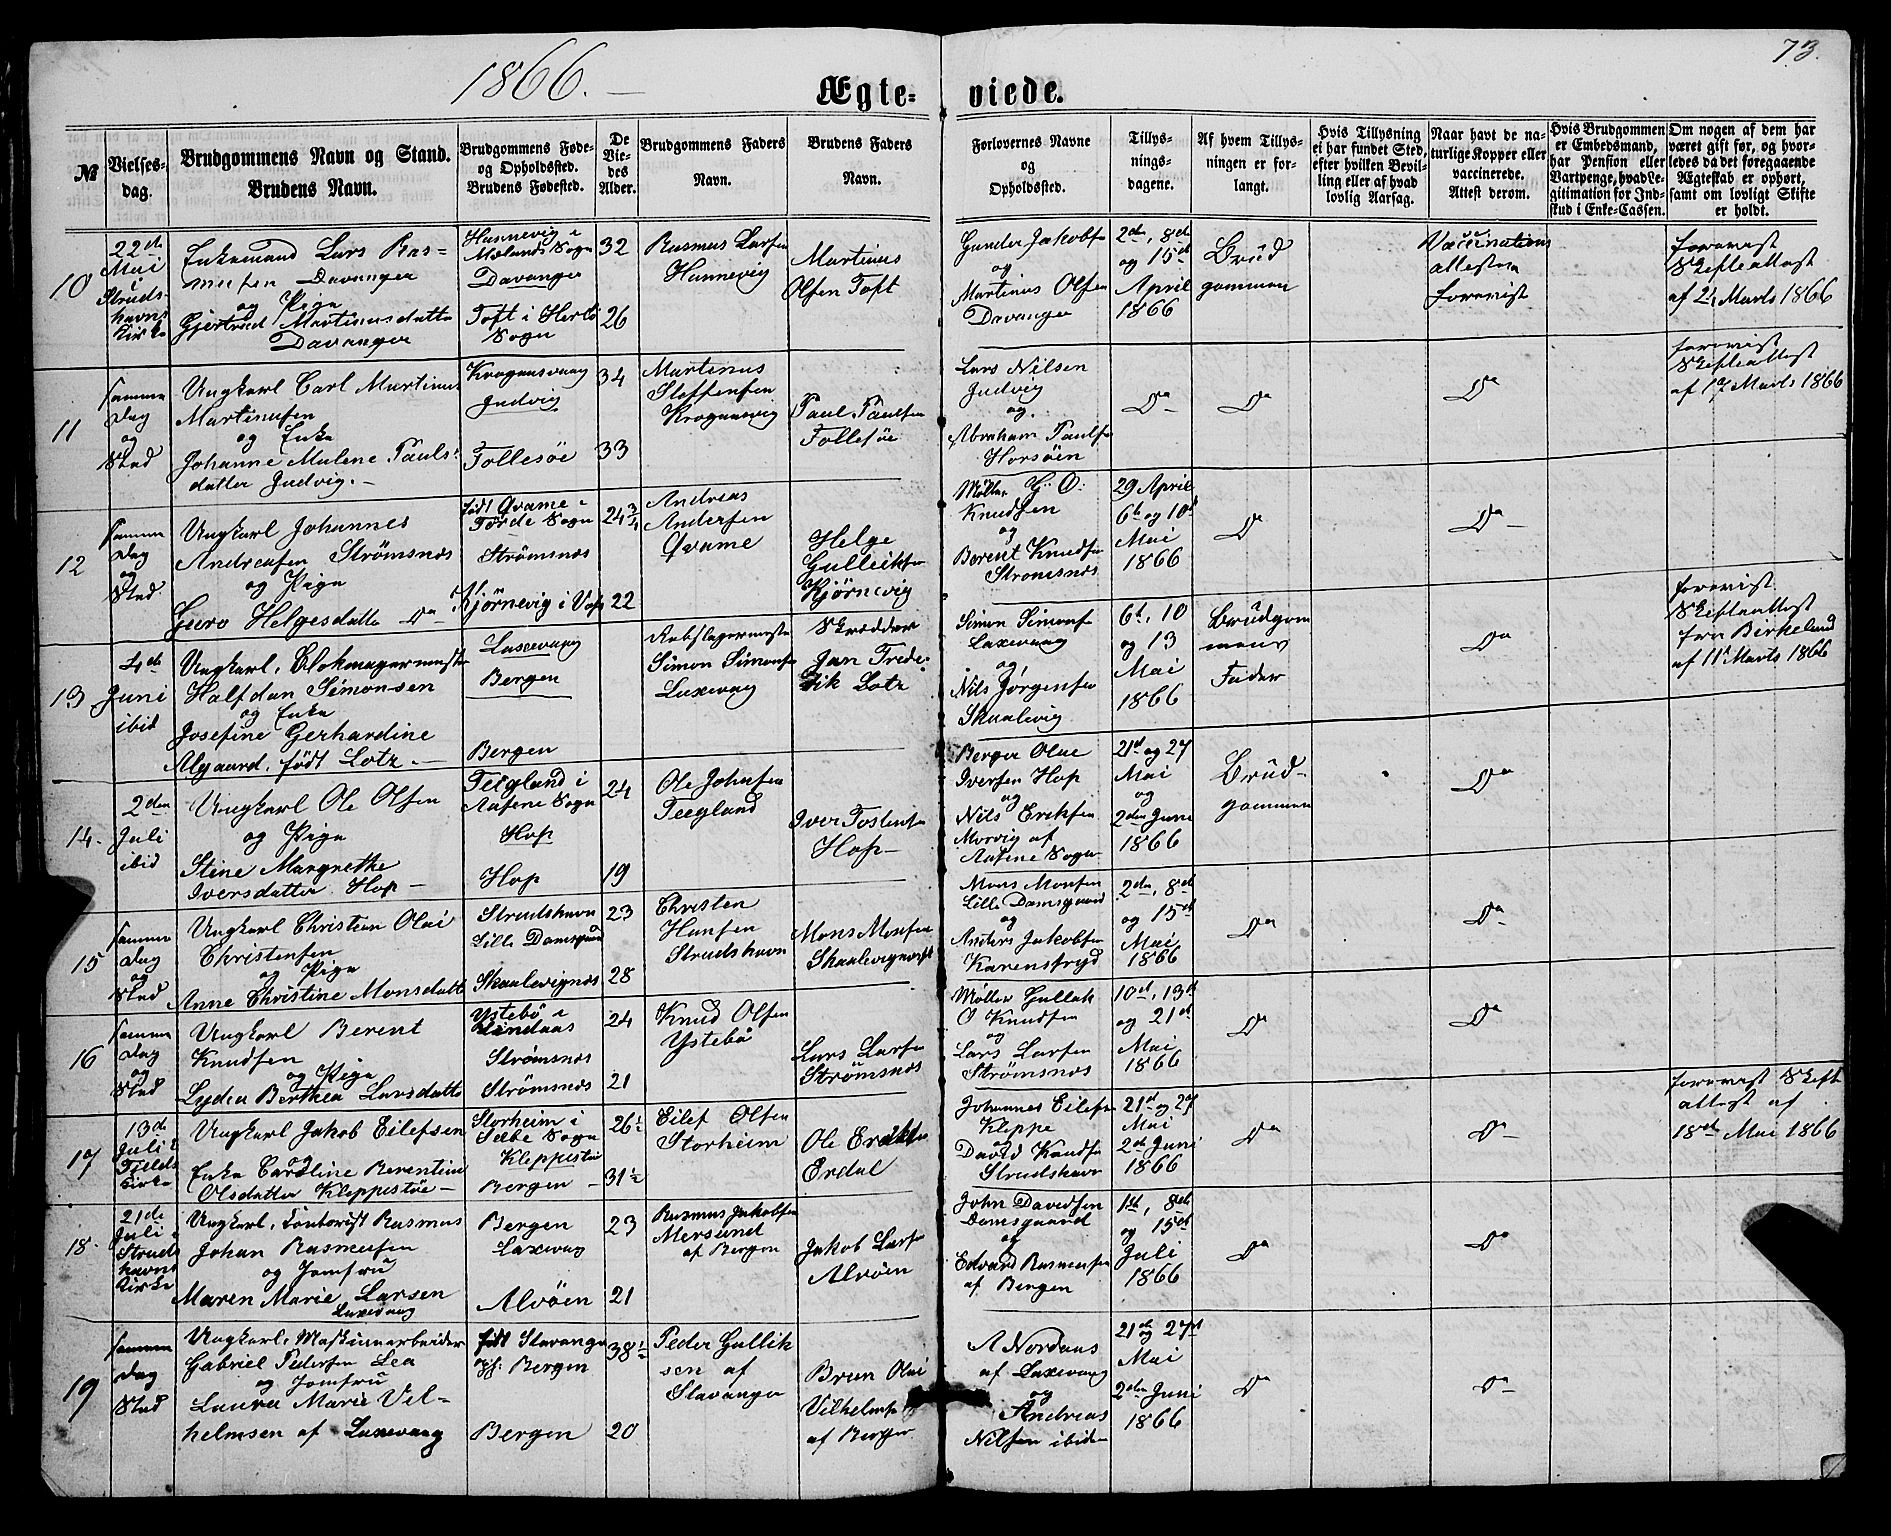 1866.
73.
Ægteviede.
№
Vielses-
dag.
Brudgommens Navn og Stand.
Brudens Navn.
Brudgommens Føde-
og Opholdssted.
Brudens Fødested.
De
Vie-
des
Alder.
Brudgommens Faders
Navn.
Brudens Faders
Navn.
Forlovernes Navne
og
Opholdssted.
Tillys-
nings-
dagene.
Af hvem Tillys-
ningen er for-
langt.
Hvis Tillysning
ei har fundet Sted,
efter hvilken Bevil-
ling eller af hvad
lovlig Aarsag.
Naar havt de na-
turlige Kopper eller
vaccinerede.
Attest derom.
Hvis Brudgommen
er Embedsmand,
har Pension eller
Vartpenge, hvad Le-
gitimation for Ind-
skud i Enke-Cassen.
Om nogen af dem har
været gift før, og hvor-
ledes da det foregaaende
Ægteskab er ophørt,
samt om lovligt Skifte
er holdt.
10
22de
Mai
Struds-
havns
Kirke
Enkemand Lars Ras-
musen Davanger
og Pige
Gjertrud Martinusdatter
Davanger
Hannevig i
Mælands Sogn
Davanger
Toft i Herlø
Sogn
32
26
Rasmus Larsen
Hannevig
Martinus
Olsen Toft
Gunder Jakobsen
og
Martinus Olsen
Davanger
2de, 8de
og 15de
April
1866
Brud
gommen
Vaccinations
attester
forevist
forevist
Skifteattest
af 21 Marts 1866
11
samme
Dag
og
Sted
Ungkarl Carl Martinus
Martinusen
og Enke
Johanne Malene Pauls-
datter Judvig.
Krogaasvaag
Judvig
Follesøe
34
33
Martinus
Steffensen
Krogaasvig
Paul Paulsen
Follesøe
Lars Nilsen
Judvig
og
Abraham Paulsen
Horsøen
Do
Do
Do
forevist
Skifteattest
af 17 Marts 1866
12
samme
Dag
og
Sted
Ungkarl Johannes
Andreasen Strømsnæs
og Pige
Guro Helgesdatter Do
født Qvame i
Førde Sogn
Strømsnæs
Kjørnevig i Vos
24 3/4
22
Andreas
Andersen
Qvame
Helge
Gulleiksen
Kjørnevig
Møller G. O.
Knudsen
og
Berent Knudsen
Strømsnæs
29 April
6te og 10de
Mai
1866
Do
Do
13
4de
Juni
ibid
Ungkarl, Blokmagermester
Halfdan Simonsen
og Enke
Josefine Gerhardine
Algaard, født Lotz.
Laxevaag
Bergen
Bergen
Rebslagermester
Simon Simonsen
Laxevaag
Skrædder
Jan Frede-
rik Lotz
Simon Simonsen
Laxevaag
og
Nils Jørgensen
Skaalevig
6te, 10
og 13
Mai
1866
Brudgom
mens
Fader
Do
forevist
Skifteattest
fra Birkeland
af 11 Marts 1866
14.
2den
Juli
ibid
Ungkarl Ole Olsen
og Pige
Stine Margrethe
Iversdatter Hop
Teigland i
Aasene Sogn
Hop
Hop
24
19
Ole Johnsen
Teegland
Iver Tostensen
Hop
Berger Olae
Iversen Hop
og
Nils Eriksen
Morvig af
Aasene Sogn
21de og 27
Mai
og
2den Juni
1866
Brud-
gommen
Do
15
samme
Dag
og
Sted
Ungkarl Christian Olai
Christensen
og Pige
Anne Christine Monsdatter
Strudshavn
Lille Damsgaard
Skaalevignæs
23
28
Christen
Hansen
Strudshavn
Mons Monsen
Skaalevignæs
Mons Monsen
Lille Damsgaard
og
Anders Jakobsen
Karensfryd
2den, 8de
og 15de
Mai
1866
Do
Do
16
samme
Dag
og
Sted
Ungkarl Berent
Knudsen
og Pige
Lydia Berthea Larsdatter
Ystebø i
Lindaas
Strømsnæs
Strømsnæs
24
21
Knud Olsen
Ystebø
Lars Larsen
Strømsnæs
Møller Gullak
O Knudsen
og
Lars Larsen
Strømsnæs
10de, 13de
og 21de
Mai
1866
Do
Do
17
13de
Juli i
Fjelds
Kirke
Ungkarl Jakob Eilefsen
og
Enke Caroline Berentine
Olsdatter Kleppestøe
Storheim i
Sæbe Sogn
Kleppestø
Bergen
26½
31½
Eilef Olsen
Storheim
Ole Eriksen
Erdal
Johannes Eilefsen
Kleppe
og
David Knudsen
Strudshavn
21de og 27
Mai
2de Juni
1866
Do
Do
forevist Skifte
attest af
18de Mai 1866
18.
21de
Juli i
Struds
havns
Kirke
Ungkarl, Contorist Rasmus
Johan Rasmussen
og Jomfru
Maren Marie Larsen
Laxevaag
Bergen
Laxevaag
Alvøen
23
21
Rasmus Jakobsen
Mersund
af Bergen
Jakob Larsen
Alvøen
John Davidsen
Damsgaard
og
Edvard Rasmussen
af Bergen
1ste, 8de
og 15de
Juli
1866
Do
Do
19
samme
Dag
Sted
Ungkarl, Maskinarbeider
Gabriel Pedersen Lea
og Jomfru
Laura Marie Vil-
helmsen af Laxevaag
født Stavanger
Bergen
Bergen
38½
20
Peder Gullik
sen af
Stavanger
Brun Olai
Vilhelmsen
af Bergen
A Nordaas
af Laxevaag
og
Andreas
Nilsen ibid
21de
og 27de
Mai
2den Juni
1866
Do
Do